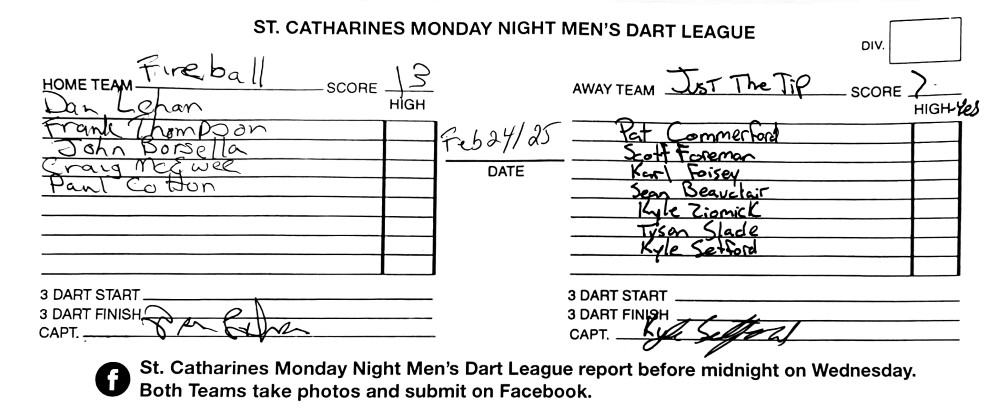 ST. CATHARINES MONDAY NIGHT MEN'S DART LEAGUE
DIV.
HOME TEAM Fireball SCORE 13
HIGH
Dan Lehan
Frank Thompson
John Borsella
Craig McElwee
Paul Cotton
3 DART START
3 DART FINISH
CAPT.
Feb 24/25
DATE
AWAY TEAM Just The Tip SCORE 7
HIGH Yes
Pat Commerford
Scott Foreman
Karl Foisey
Sean Beauclair
Kyle Ziomick
Tyson Slade
Kyle Setford
3 DART START
3 DART FINISH
CAPT. Kyle Setford
f St. Catharines Monday Night Men's Dart League report before midnight on Wednesday.
Both Teams take photos and submit on Facebook.